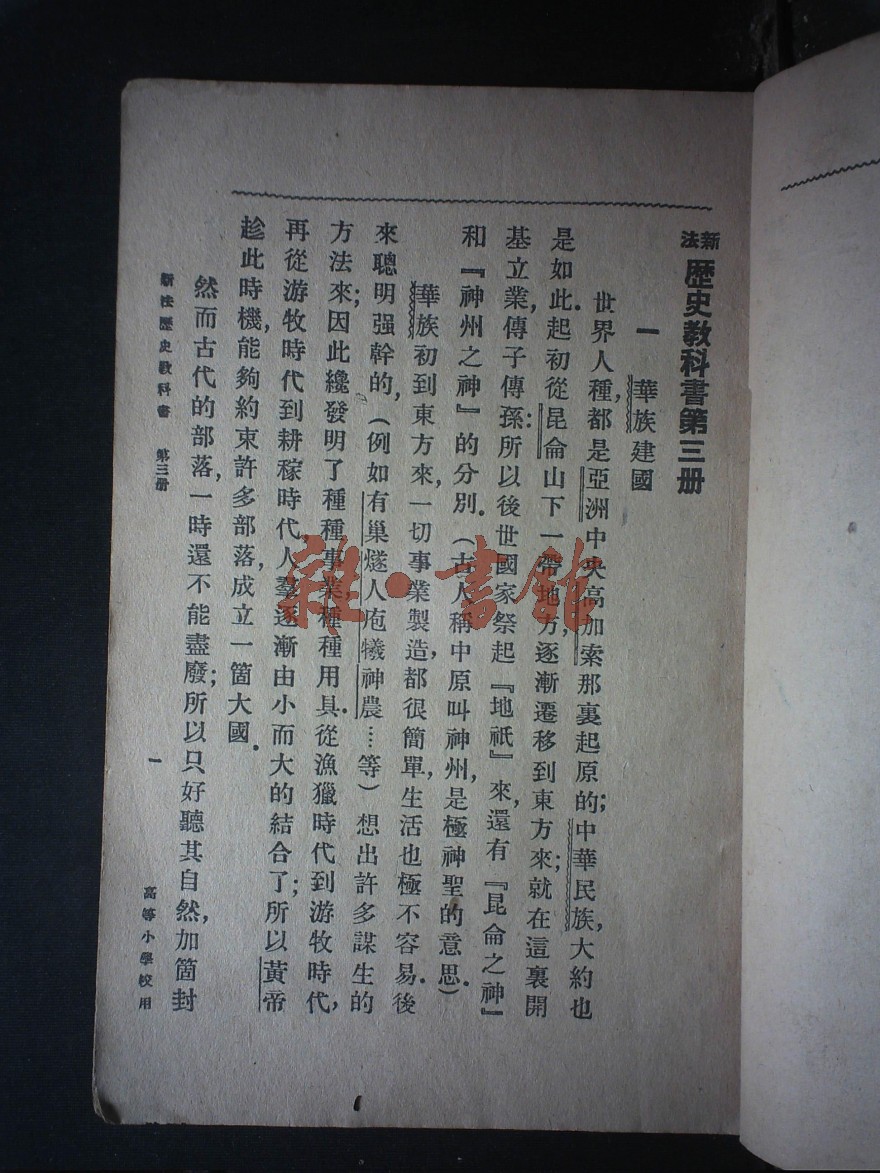 新法歷史教科書第三册
一 華族建國
世界人種,都是亞洲中央高加索那裏起原的;中華民族,大約也
是如此.起初從昆侖山下一帶地方,逐漸遷移到東方來;就在這裏開
基立業,傳子傳孫:所以後世國家祭起『地祇』來,還有『昆侖之神』
和『神州之神』的分別.(古人稱中原叫神州,是極神聖的意思.)
華族初到東方來,一切事業製造,都很簡單,生活也極不容易.後
來聰明强幹的,(例如有巢燧人庖犧神農…等)想出許多謀生的
方法來;因此纔發明了種種事業種種用具.從漁獵時代到游牧時代,
再從游牧時代到耕稼時代,人羣逐漸由小而大的結合了;所以黃帝
趁此時機,能夠約束許多部落,成立一箇大國.
然而古代的部落,一時還不能盡廢;所以只好聽其自然,加箇封
新法歷史教科書 第三册 一 高等小學校用
雜·書館